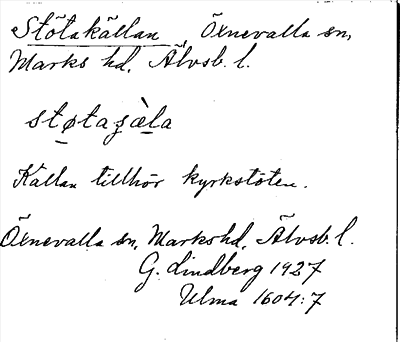 Stötakällan, Öxnevalla sn,
Marks hd, Älvsb. l.
støtaʒàla
Källan tillhör kyrkstöten.
Öxnevalla sn, Marks hd, Älvsb. l.
G. Lindberg 1927
Ulma 1604:7